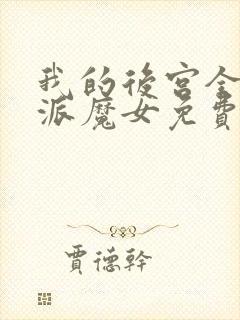 我的後宮全
派魔女免費
賈德幹